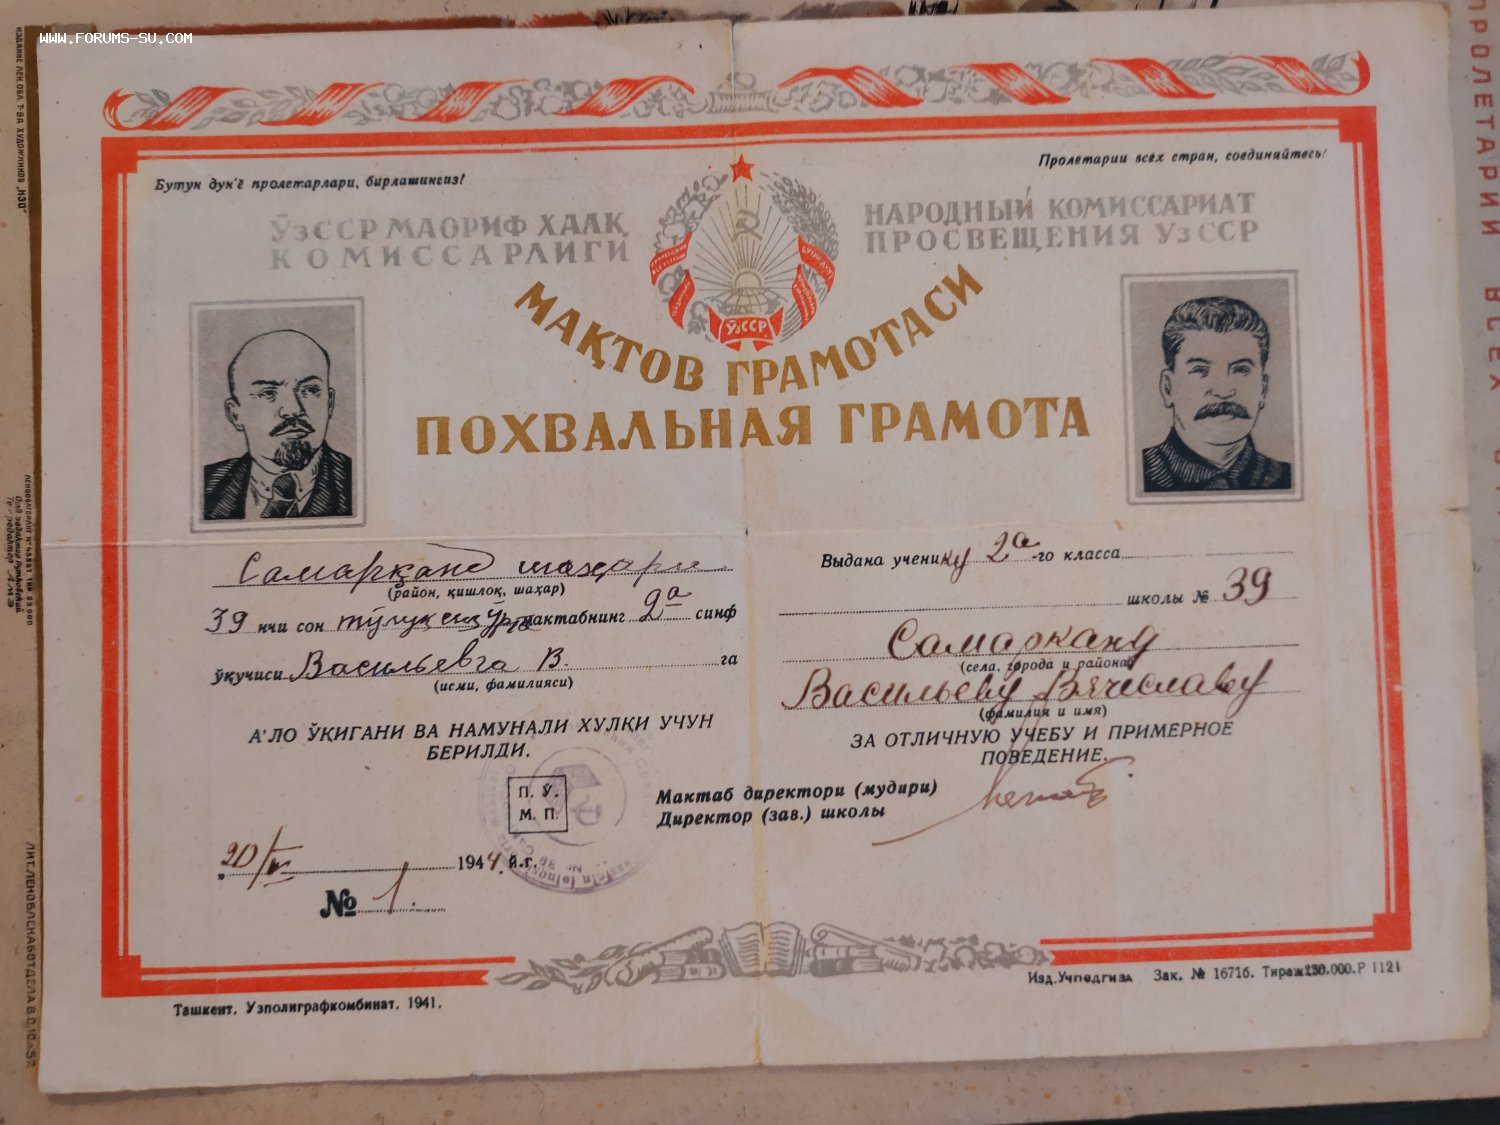 WWW.FORUMS-SU.COM
Бутун дун'ё пролетарлари, бирлашингиз!
Пролетарии всех стран, соединяйтесь!
ЎзССР МАОРИФ ХАЛҚ
КОМИССАРЛИГИ
НАРОДНЫЙ КОМИССАРИАТ
ПРОСВЕЩЕНИЯ УзССР
ЎзССР
МАҚТОВ ГРАМОТАСИ
ПОХВАЛЬНАЯ ГРАМОТА
Самарқанд шаҳари
(район, қишлоқ, шаҳар)
39 нчи сон мактабнинг 2а синф
ўқучиси Васильевга В. га
(исми, фамилияси)
А'ЛО ЎҚИГАНИ ВА НАМУНАЛИ ХУЛҚИ УЧУН
БЕРИЛДИ.
Выдана ученику 2а-го класса
школы № 39
Самарканд
(села, города и района)
Васильеву Вячеславу
(фамилия и имя)
ЗА ОТЛИЧНУЮ УЧЕБУ И ПРИМЕРНОЕ
ПОВЕДЕНИЕ.
П. Ў.
М. П.
Мактаб директори (мудири)
Директор (зав.) школы
1944 й.г.
№ 1.
Ташкент. Узполиграфкомбинат. 1941.
Изд.Учпедгиза Зак. № 16716. Тираж 250.000. Р 1121
ПРОЛЕТАРИИ ВСЕХ